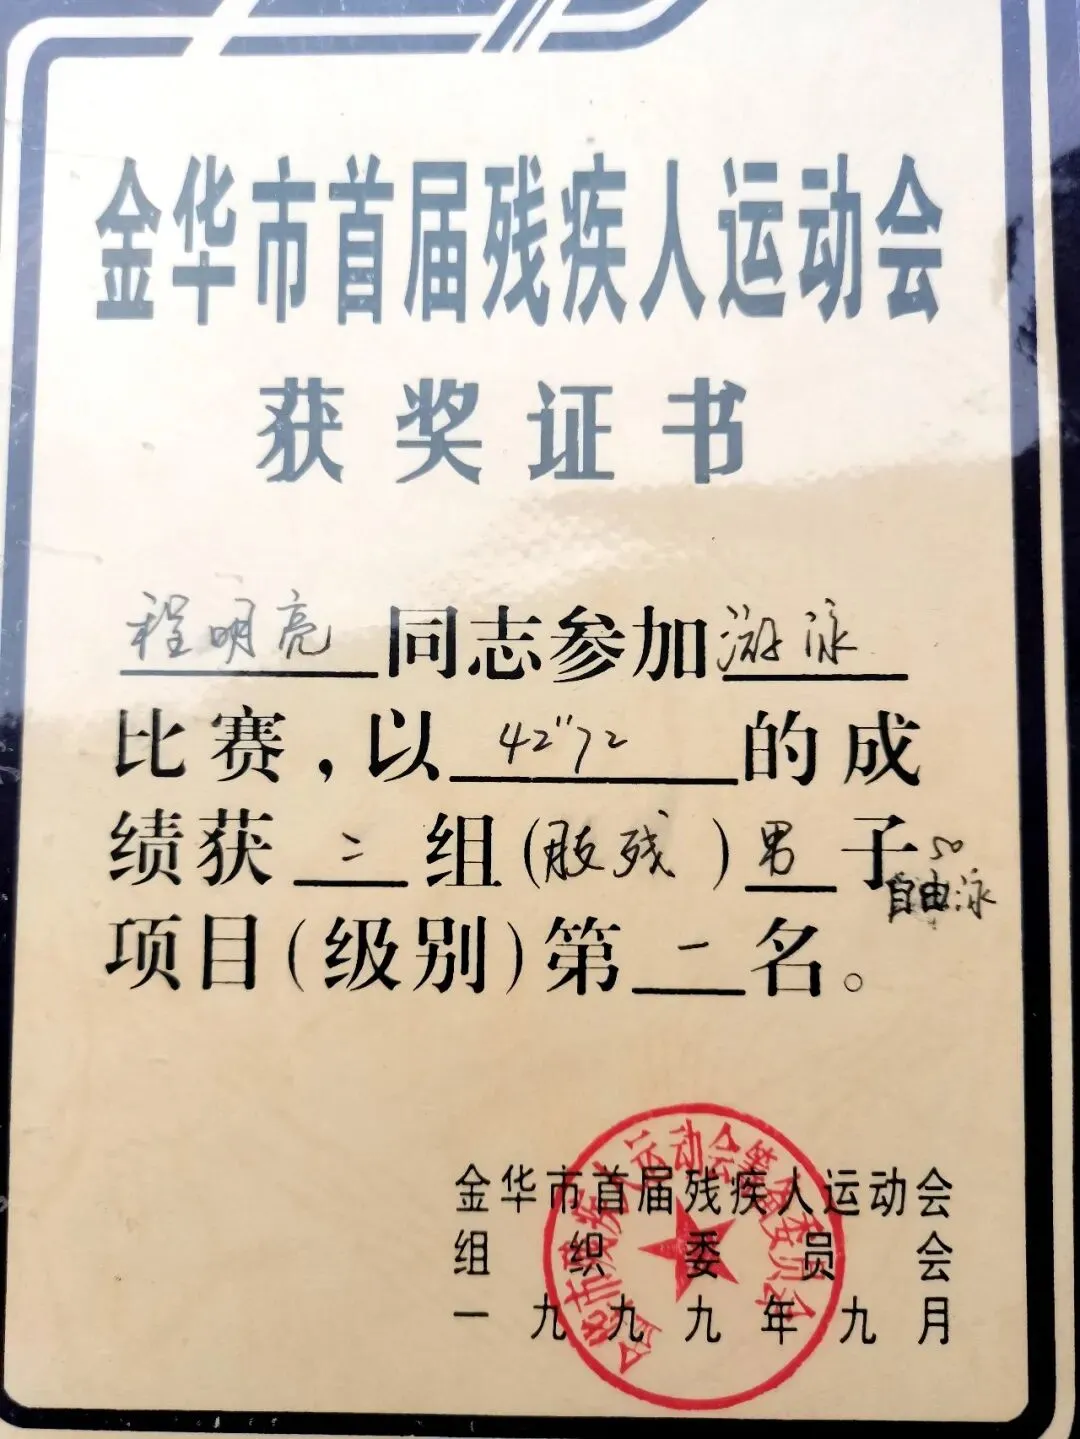 金华市首届残疾人运动会
获奖证书
程明亮同志参加游泳
比赛，以42"72的成
绩获二组(肢残)男子50
自由泳
项目(级别)第一名。
金华市首届残疾人运动会
组织委员会
一九九九年九月
金华市残疾人运动会筹备委员会